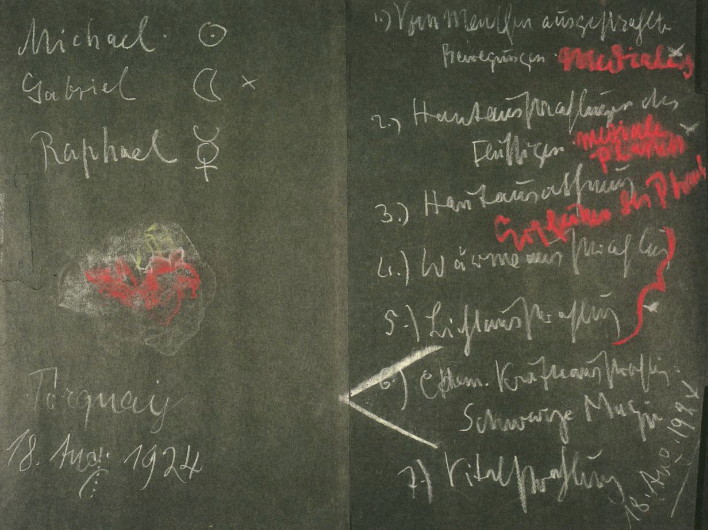 Michael. ☉
Gabriel ☾ ×
Raphael ☿
Torquay
18. Aug. 1924
1.) Vom Menschen ausgestrahlte
Bewegungen. Mediales
2.) Hautausstrahlungen des
Flüssigen. mediale
3.) Hautausathmung
4.) Wärmeausstrahlung
5.) Lichtausstrahlung
6.) Chem. Kräfteausstrahlg.
Schwarze Magie
7.) Vitalstrahlung
18. Aug. 1924